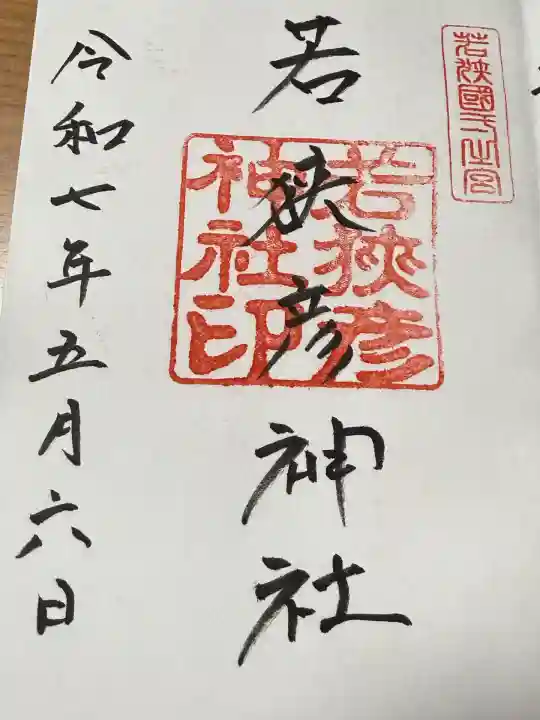 若狭國一之宮
若狭彦神社
若狹彦
神社印
令和七年五月六日